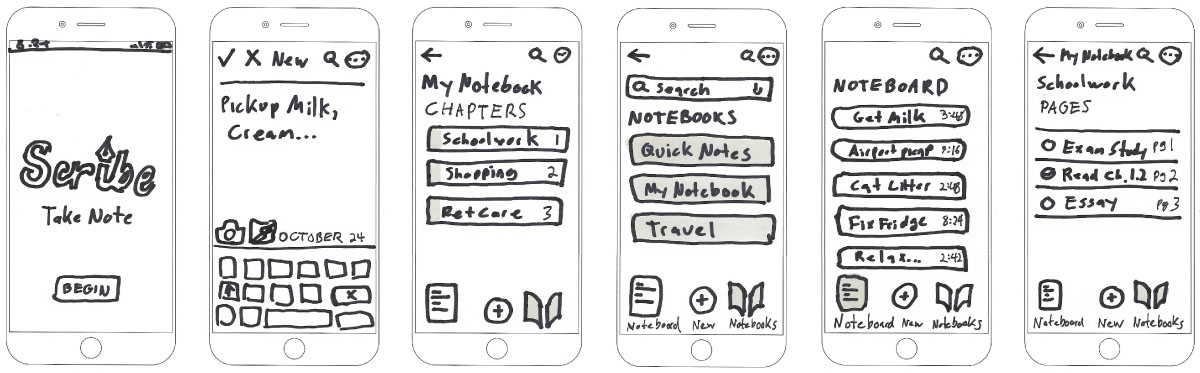 8:24
Scribe
Take Note
BEGIN
✓ X New
Pickup Milk,
Cream...
OCTOBER 24
X
My Notebook
CHAPTERS
Schoolwork 1
Shopping 2
Pet Care 3
Search
NOTEBOOKS
Quick Notes
My Notebook
Travel
Noteboard New Notebooks
NOTEBOARD
Get Milk 3:48
Airport pickup 9:16
Cat Litter 2:48
Fix Fridge 8:24
Relax... 2:42
Noteboard New Notebooks
← My Notebook
Schoolwork
PAGES
Exam Study pg 1
Read Ch. 1.2 pg 2
Essay pg 3
Noteboard New Notebooks